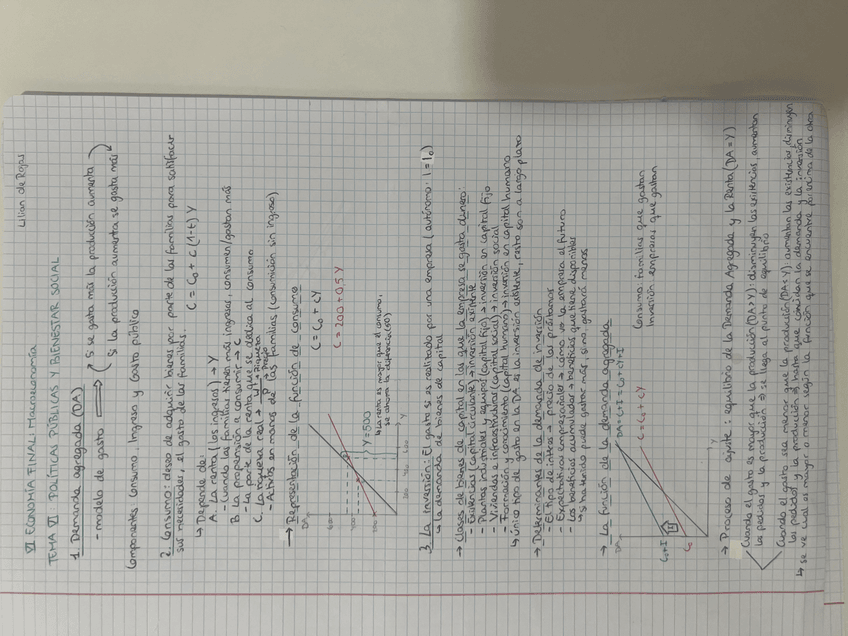 Lilian de Rojas
VI ECONOMÍA FINAL: Macroeconomía
TEMA VI: POLÍTICAS PÚBLICAS Y BIENESTAR SOCIAL
1. Demanda agregada (DA)
- modelo de gasto
Si se gasta más la produción aumenta
Si la producción aumenta se gasta más
Componentes: Consumo, Ingreso y Gasto público
2. Consumo: deseo de adquirir bienes por parte de las familias para satisfacer
sus necesidades, el gasto de las familias.
C = C₀ + c (1-t) Y
↳ Depende de:
A. La renta (los ingresos) → Y
- Cuando las familias tienen más ingresos, consumen/gastan más
B. La propensión a consumir → c
- La parte de la renta que se dedica al consumo
C. La riqueza real → W → Riqueza
P → Precio
- Activos en manos de las familias (consumición sin ingreso)
→ Representación de la función de consumo
C = C₀ + cY
C = 200 + 0,5 Y
DA
Y = 500
↳ La renta es mayor que el consumo,
se ahorra la diferencia (50)
Y
3. La inversión: El gasto si es realitado por una empresa (autónomo: I = I₀)
↳ la demanda de bienes de capital
→ Clases de bienes de capital en las que la empresa se gasta dinero:
- Existencias (capital circulante) → inversión existente
- Plantas industriales y equipos (capital fijo) → inversión en capital fijo
- Viviendas e infraestructuras (capital social) → inversión social
- Formación y conocimiento (capital humano) → inversión en capital humano
↳ único tipo de gasto en la DA es la inversión existente, resto son a largo plazo
→ Determinantes de la demanda de inversión
- El tipo de interés → precio de los préstamos
- Expectativas empresariales → cómo ve la empresa el futuro
- Los beneficios acumulados → beneficios que tiene disponibles
↳ si ha tenido puede gastar más, si no, gastará menos
→ La función de la demanda agregada
DA
DA = C + I = C₀ + cY + I
C = C₀ + cY
C₀+I
I
C₀
Y
Consumo: familias que gastan
Inversión: empresas que gastan
→ Proceso de ajuste: equilibrio de la Demanda Agregada y la Renta (DA = Y)
Cuando el gasto es mayor que la producción (DA>Y): disminuyen las existencias, aumentan
los pedidos y la producción ⇒ se llega al punto de equilibrio
Cuando el gasto sea menor que la producción (DA<Y) aumentan las existencias, disminuyen
los pedidos y la producción ⇒ hasta que coincidan la demanda y la inversión
↳ se ve cual es mayor o menor según la función que se encuentre por encima de la otra